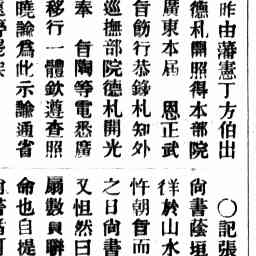 昨由藩憲丁方伯出
德札開照得本部院
廣東本屆　恩正武
旨飭行恭錄札知外
巡撫部院德札開光
奉　旨陶等電悉廣
移行一體欽遵查照
曉諭爲此示諭通省
〇記張
尚書蔭垣
徉於山水
忤朝旨而
之日尚書
又怛然曰
扇數頁聯
命也自提